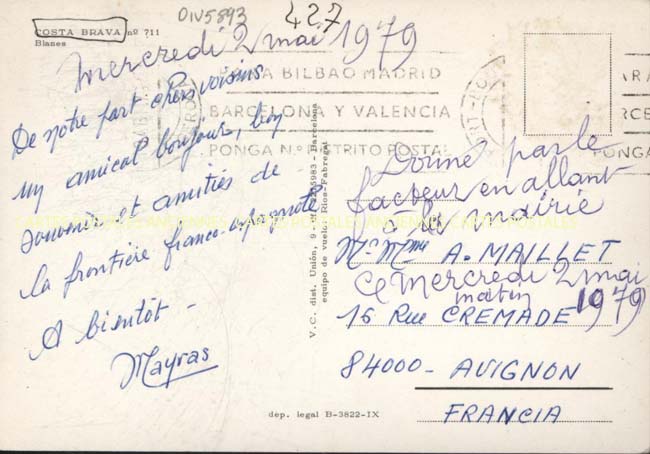 OIV5893
427
COSTA BRAVA nº 711
Blanes
Mercredi 2 mai 1979
BILBAO MADRID
BARCELONA Y VALENCIA
PONGA Nº DISTRITO POSTAL
De notre part chers voisins
un amical bonjour, bon
souvenir et amitiés de
la frontière franco-espagnole
A bientôt -
Mayras
V.C. dist. Unión, 9 - Barcelona
equipo de vuelo Ríos-Fabregat
Donné par le
facteur en allant
mairie
Mr Mme A. MAILLET
Ce Mercredi 2 mai
matin 1979
16 Rue CREMADE
84000 - AVIGNON
FRANCIA
dep. legal B-3822-IX
CARTES POSTALES ANCIENNES